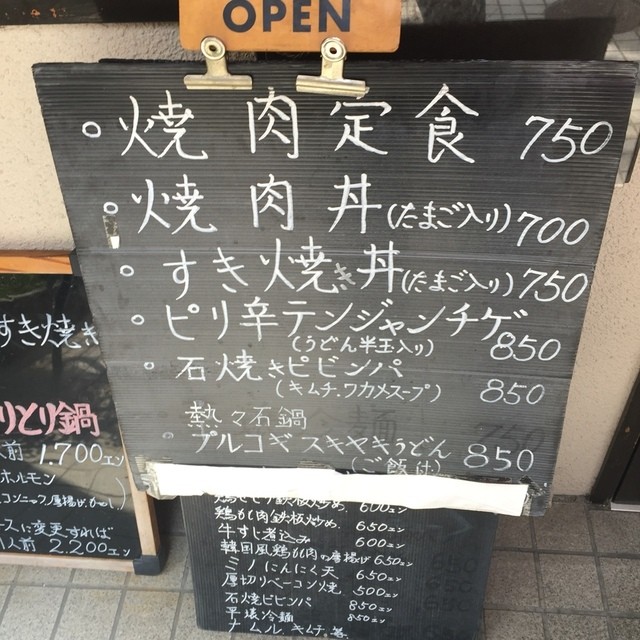 OPEN
○焼肉定食 750
○焼肉丼(たまご入り) 700
○すき焼き丼(たまご入り) 750
○ピリ辛テンジャンチゲ
(うどん半玉入り) 850
○石焼きピビンパ
(キムチ.ワカメスープ) 850
熱々石鍋
○プルコギスキヤキうどん
(ご飯付) 850
すき焼き
りとり鍋
人前 1.700エン
ホルモン
ースに変更すれば
人前 2.200エン
600エン
鶏もも肉鉄板炒め 650エン
牛すじ煮込み 600エン
韓国風鶏もも肉の唐揚げ 650エン
ミノにんにく天 650エン
厚切りベーコン焼 500エン
石焼ピビンパ 850エン
平壌冷麺 850エン
ナムル キムチ